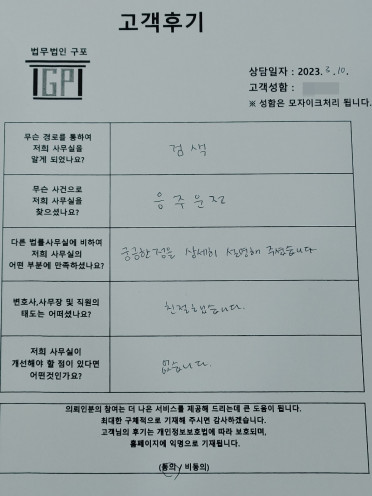 고객후기
법무법인 구포
IGPI
상담일자 : 2023. 3. 10.
고객성함 :
※ 성함은 모자이크처리 됩니다.
무슨 경로를 통하여
저희 사무실을
알게 되었나요?
검색
무슨 사건으로
저희 사무실을
찾으셨나요?
음주운전
다른 법률사무실에 비하여
저희 사무실의
어떤 부분에 만족하셨나요?
궁금한점을 상세히 설명해 주셨습니다
변호사,사무장 및 직원의
태도는 어떠셨나요?
친절했습니다.
저희 사무실이
개선해야 할 점이 있다면
어떤것인가요?
없습니다.
의뢰인분의 참여는 더 나은 서비스를 제공해 드리는데 큰 도움이 됩니다.
최대한 구체적으로 기재해 주시면 감사하겠습니다.
고객님의 후기는 개인정보보호법에 따라 보호되며,
홈페이지에 익명으로 기재됩니다.
(동의 / 비동의)